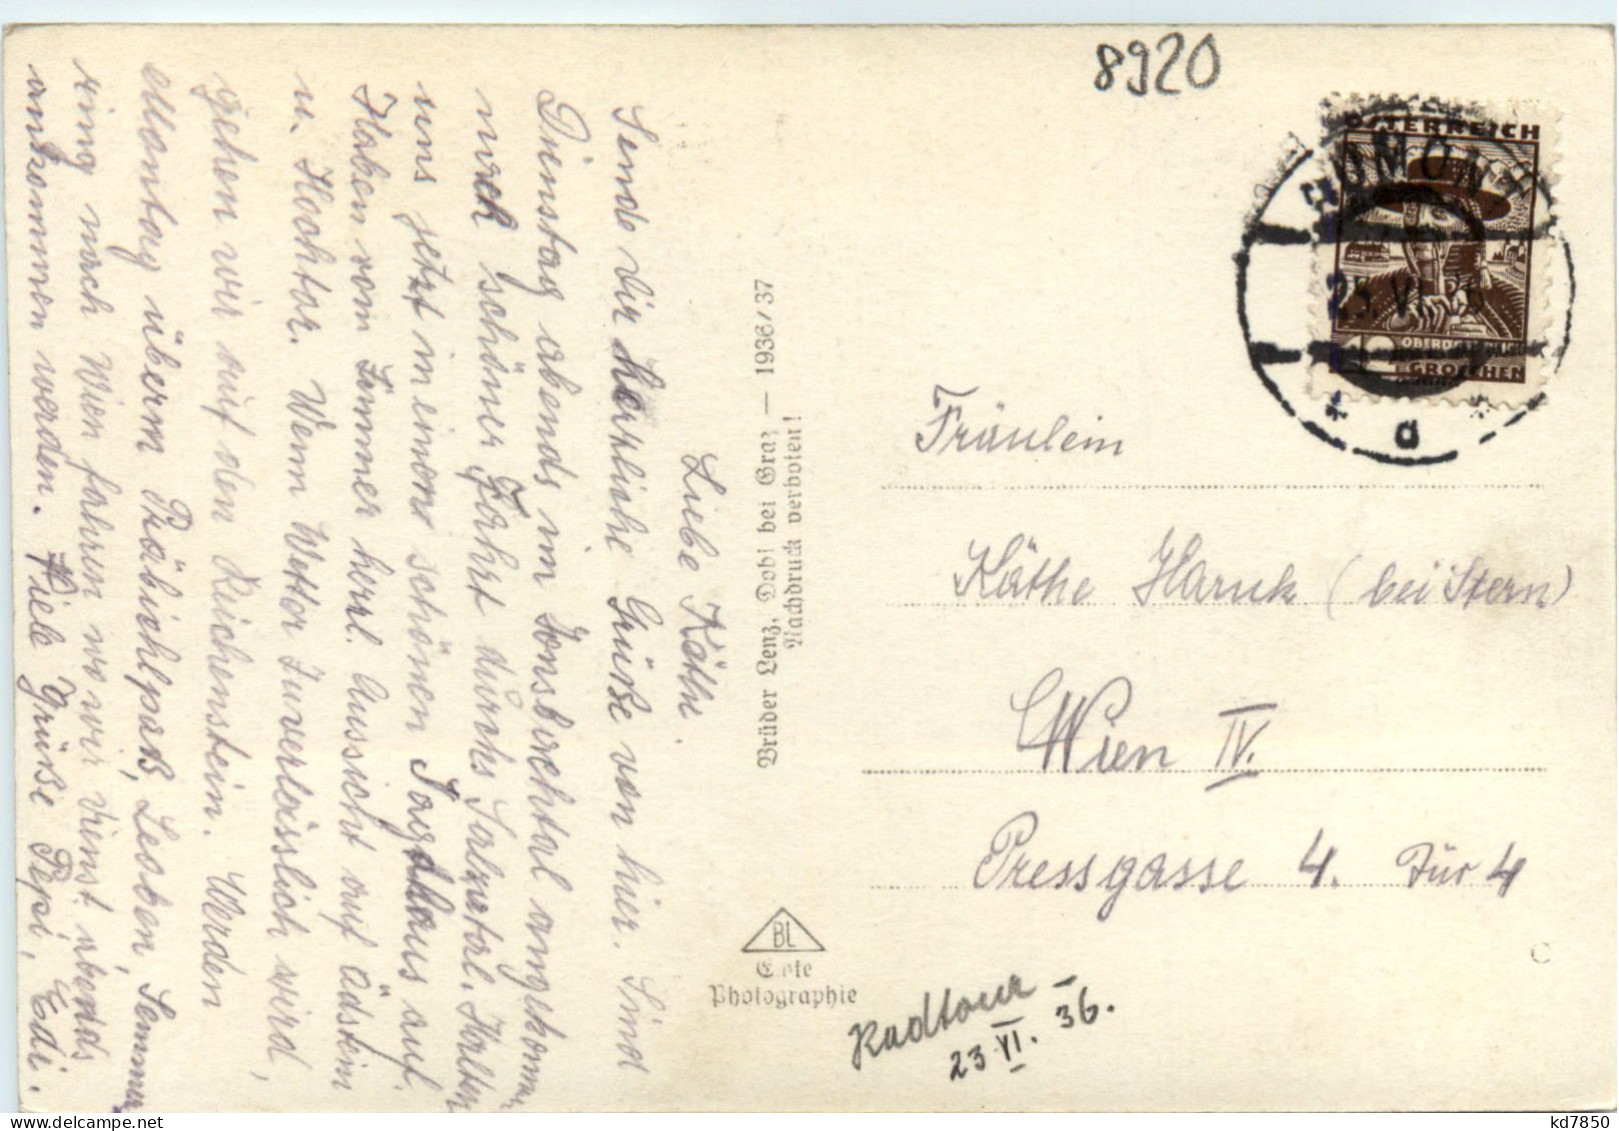 8920
ÖSTERREICH
ADMONT
25. VI. 36
OBERÖSTERREICH
GROSCHEN
* a *
Liebe Käthe.
Sende dir herzliche Grüße von hier. Sind
Dienstag abends im Jonsbachtal angekommen
nach schöner Fahrt durchs Salzatal. Halten
uns jetzt in einem schönen Jagdhaus auf.
Haben vom Zimmer herrl. Aussicht auf Ödstein
u. Hochtor. Wenn Wetter zuverlässlich wird,
gehen wir auf den Reichenstein. Werden
Montag übern Präbichlpass, Leoben, Semmering
ring nach Wien fahren wo wir Dienst. abends
ankommen werden. Viele Grüße Pepi, Edi.
Brüder Lenz, Dobl bei Graz — 1936/37
Nachdruck verboten!
BL
Echte
Photographie
Fräulein
Käthe Hanuk (bei Stern)
Wien IV.
Pressgasse 4. Tür 4
Radtour —
23 VI. 36.
C
kd7850